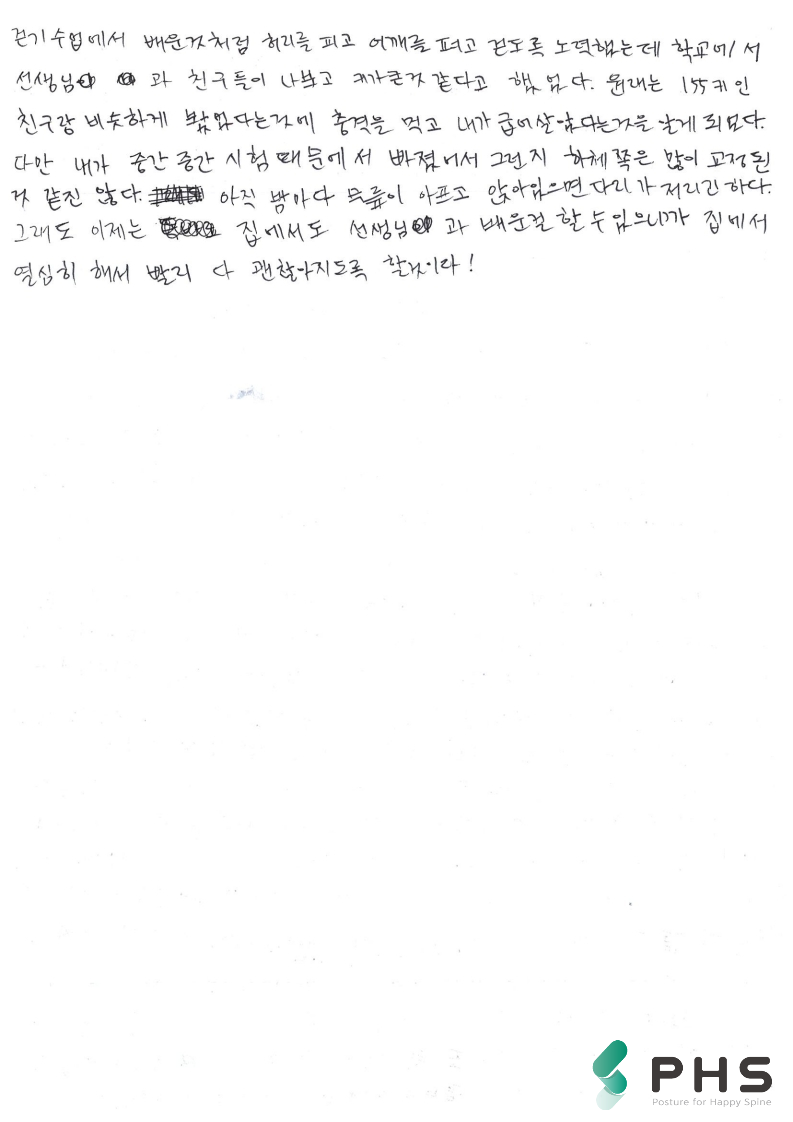 걷기수업에서 배운것처럼 허리를 피고 어깨를 펴고 걷도록 노력했는데 학교에서
선생님 과 친구들이 나보고 키가큰것 같다고 했었다. 원래는 155키인
친구랑 비슷하게 봤었다는것에 충격을 먹고 내가 굽어살았다는것을 알게 되었다.
다만 내가 중간중간 시험때문에서 빠졌어서 그런지 하체쪽은 많이 교정된
것 같진 않다. 아직 밤마다 무릎이 아프고 앉아있으면 다리가 저리긴하다.
그래도 이제는 집에서도 선생님 과 배운걸 할 수 있으니까 집에서
열심히 해서 빨리 다 괜찮아지도록 할것이라!
PHS
Posture for Happy Spine